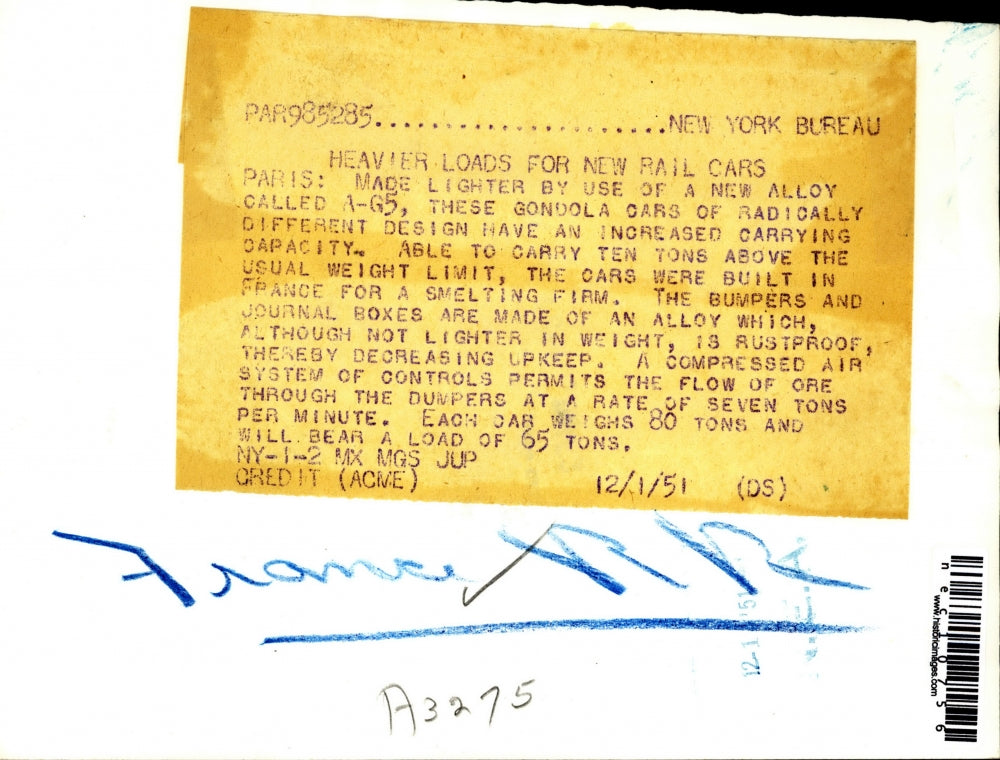 PAR985285......................NEW YORK BUREAU
HEAVIER LOADS FOR NEW RAIL CARS
PARIS: MADE LIGHTER BY USE OF A NEW ALLOY
CALLED A-G5, THESE GONDOLA CARS OF RADICALLY
DIFFERENT DESIGN HAVE AN INCREASED CARRYING
CAPACITY. ABLE TO CARRY TEN TONS ABOVE THE
USUAL WEIGHT LIMIT, THE CARS WERE BUILT IN
FRANCE FOR A SMELTING FIRM. THE BUMPERS AND
JOURNAL BOXES ARE MADE OF AN ALLOY WHICH,
ALTHOUGH NOT LIGHTER IN WEIGHT, IS RUSTPROOF,
THEREBY DECREASING UPKEEP. A COMPRESSED AIR
SYSTEM OF CONTROLS PERMITS THE FLOW OF ORE
THROUGH THE DUMPERS AT A RATE OF SEVEN TONS
PER MINUTE. EACH CAR WEIGHS 80 TONS AND
WILL BEAR A LOAD OF 65 TONS.
NY-1-2 MX MGS JUP
CREDIT (ACME) 12/1/51 (DS)
France RR
A3275
www.historicimages.com
nec10756